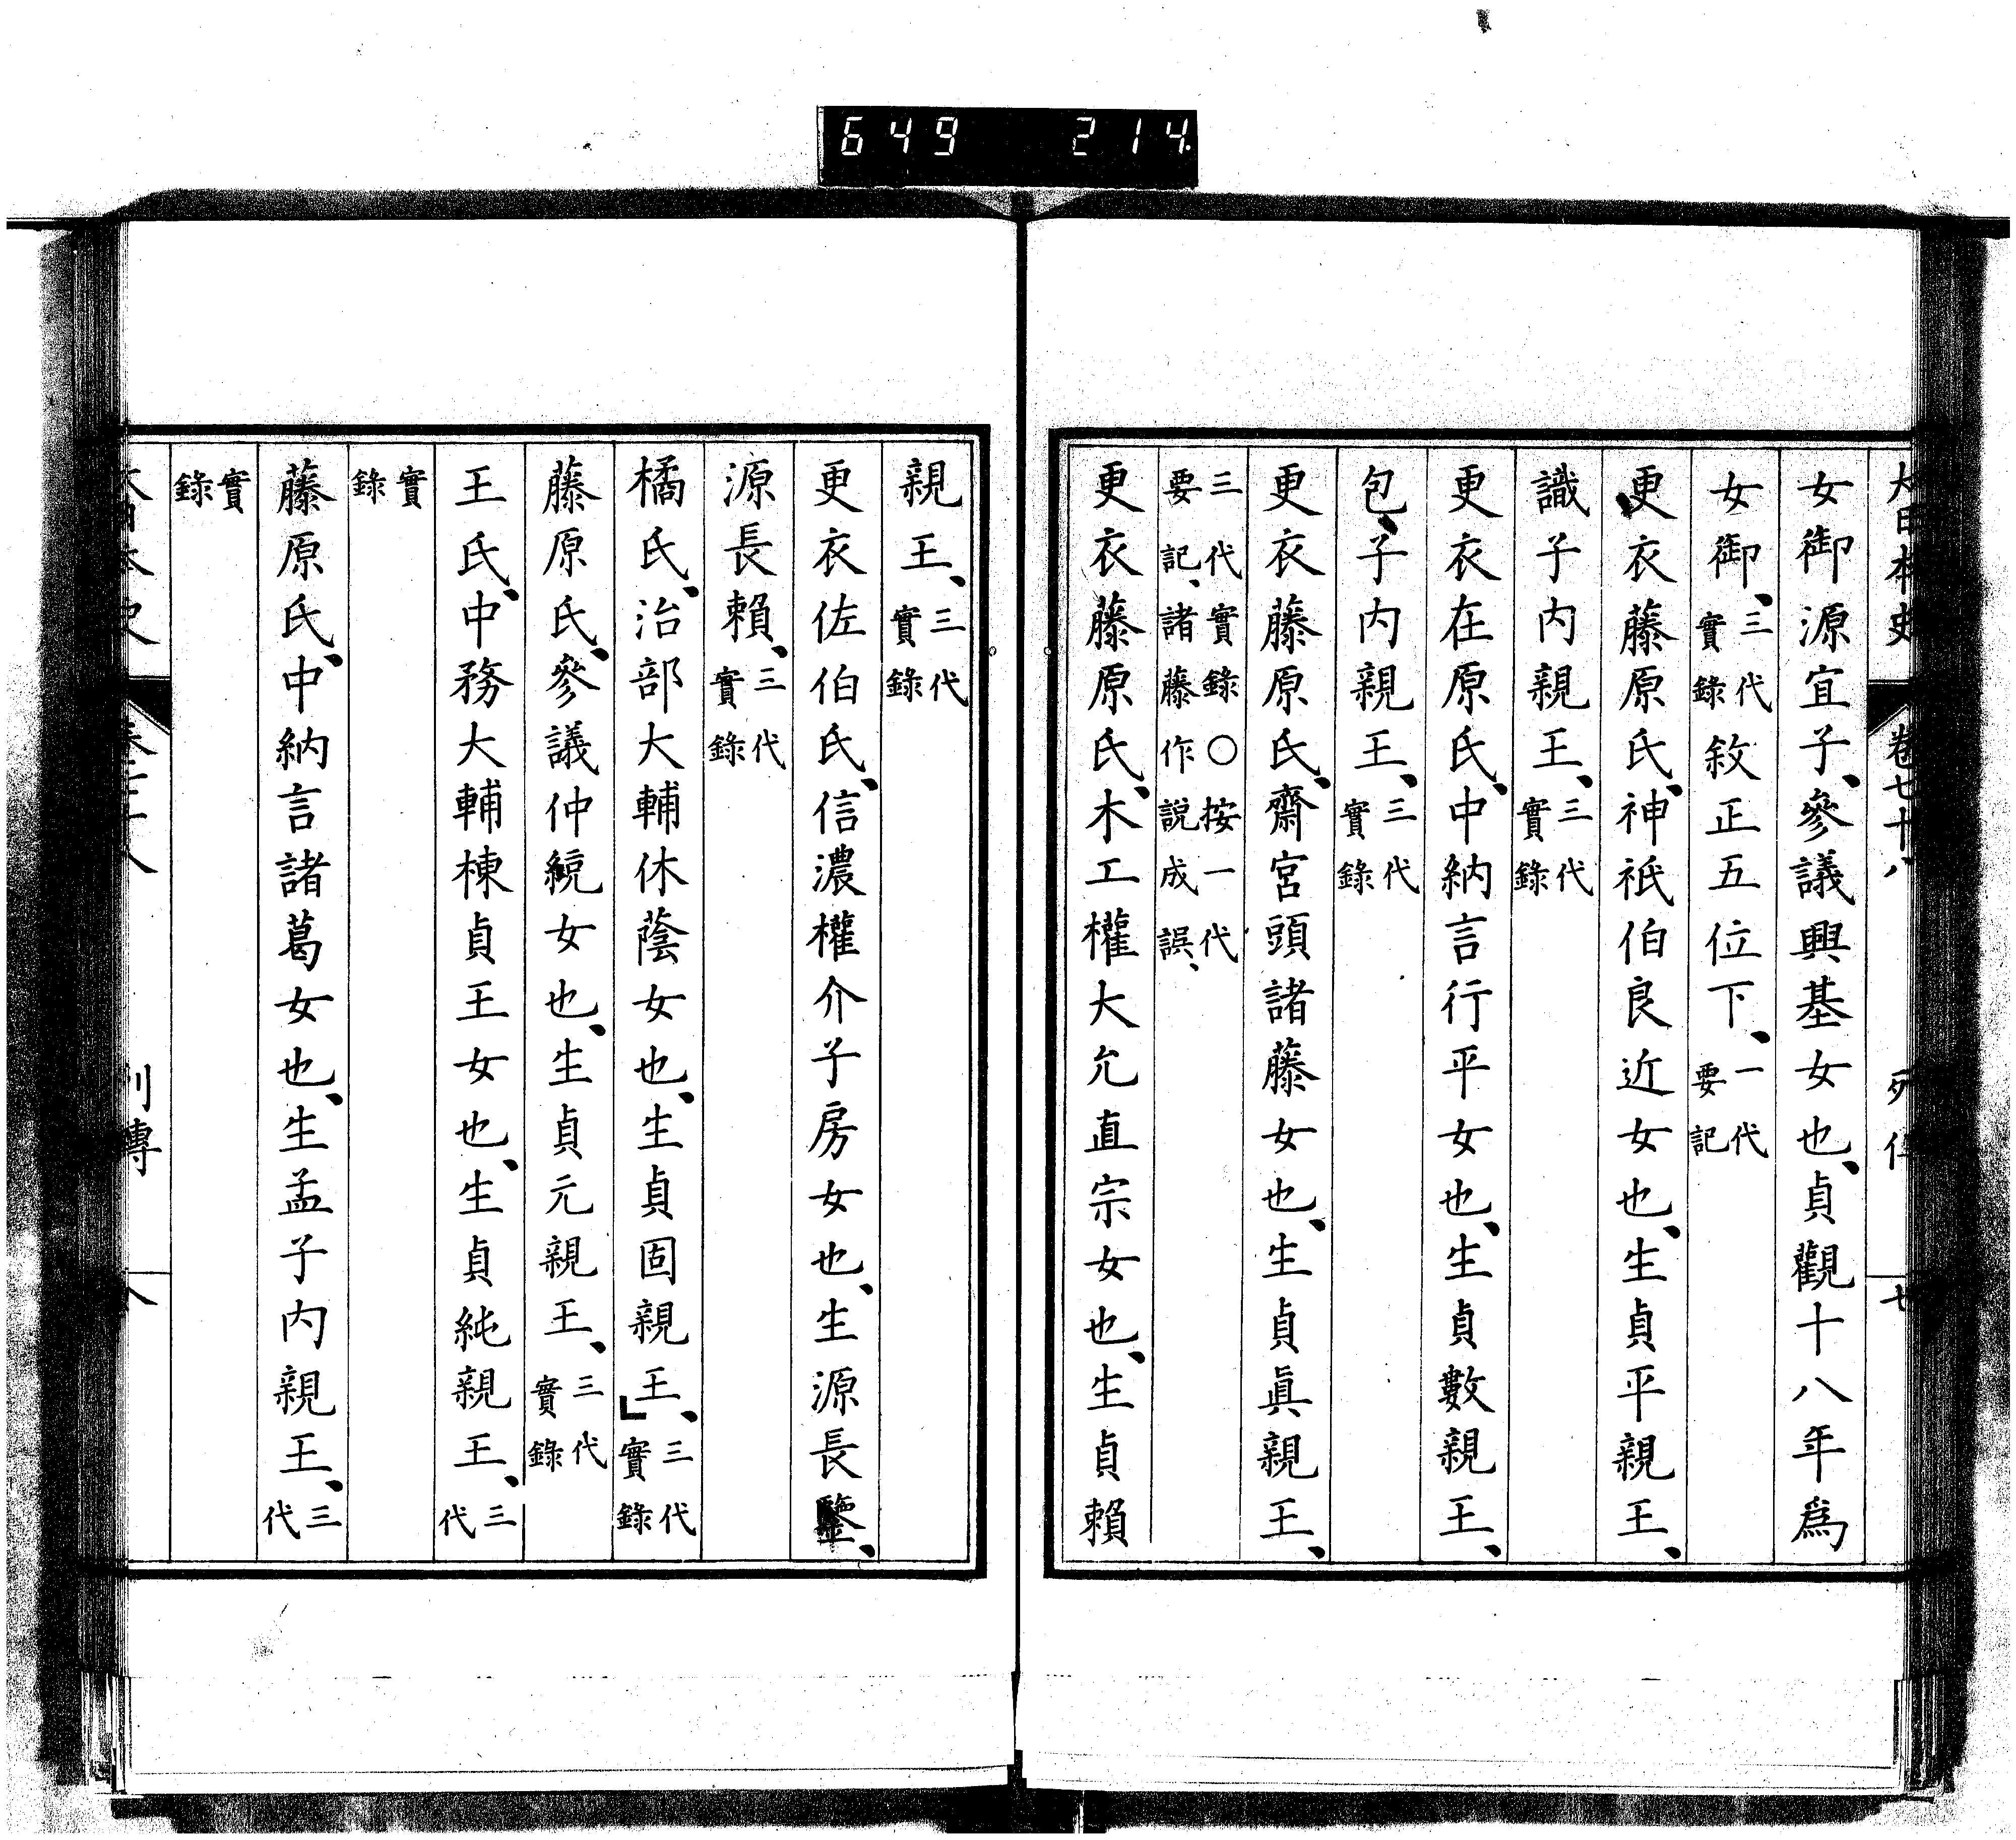 649 214.
大日本史 卷七十八 列傳 七
女御源宜子、參議興基女也、貞觀十八年爲
女御、三代實錄敘正五位下、一代要記
更衣藤原氏、神祇伯良近女也、生貞平親王、
識子內親王、三代實錄
更衣在原氏、中納言行平女也、生貞數親王、
包子內親王、三代實錄
更衣藤原氏、齋宮頭諸藤女也、生貞眞親王、
三代實錄○按一代要記、諸藤作說成誤、
更衣藤原氏、木工權大允直宗女也、生貞賴
親王、三代實錄
更衣佐伯氏、信濃權介子房女也、生源長鑒、
源長賴、三代實錄
橘氏、治部大輔休蔭女也、生貞固親王、三代實錄
藤原氏、參議仲統女也、生貞元親王、三代實錄
王氏、中務大輔棟貞王女也、生貞純親王、三代
實錄
藤原氏、中納言諸葛女也、生孟子內親王、三代
實錄
大日本史 卷七十八 列傳 八